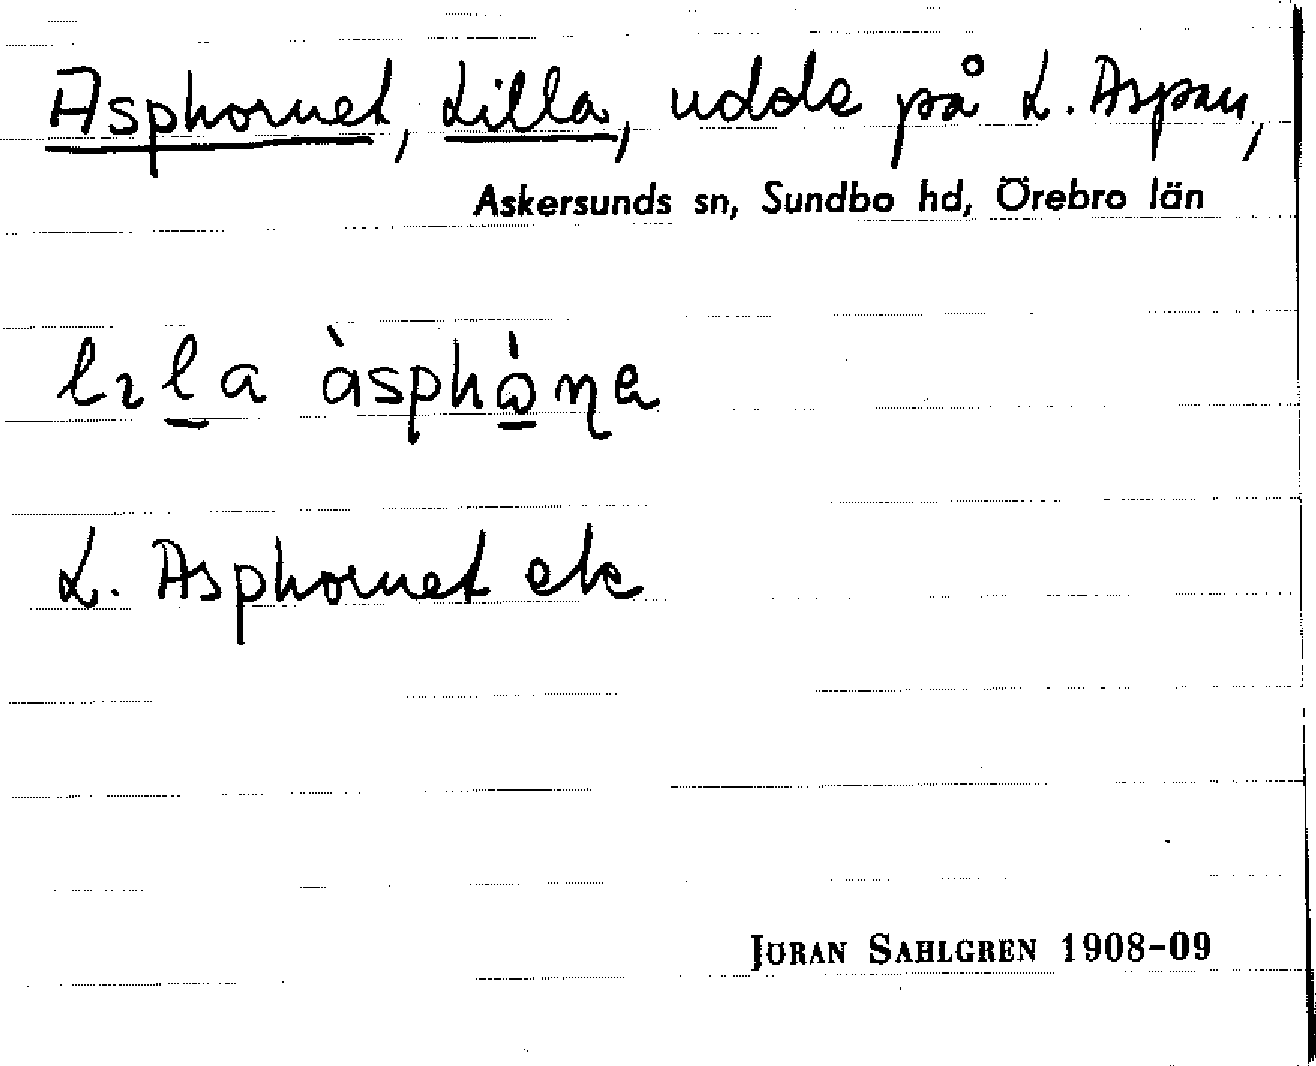 Asphornet, Lilla, udde på L. Aspen,
Askersunds sn, Sundbo hd, Örebro län
lɩla àsphɷ̀ɳe
L. Asphornet ek
JÖRAN SAHLGREN 1908-09